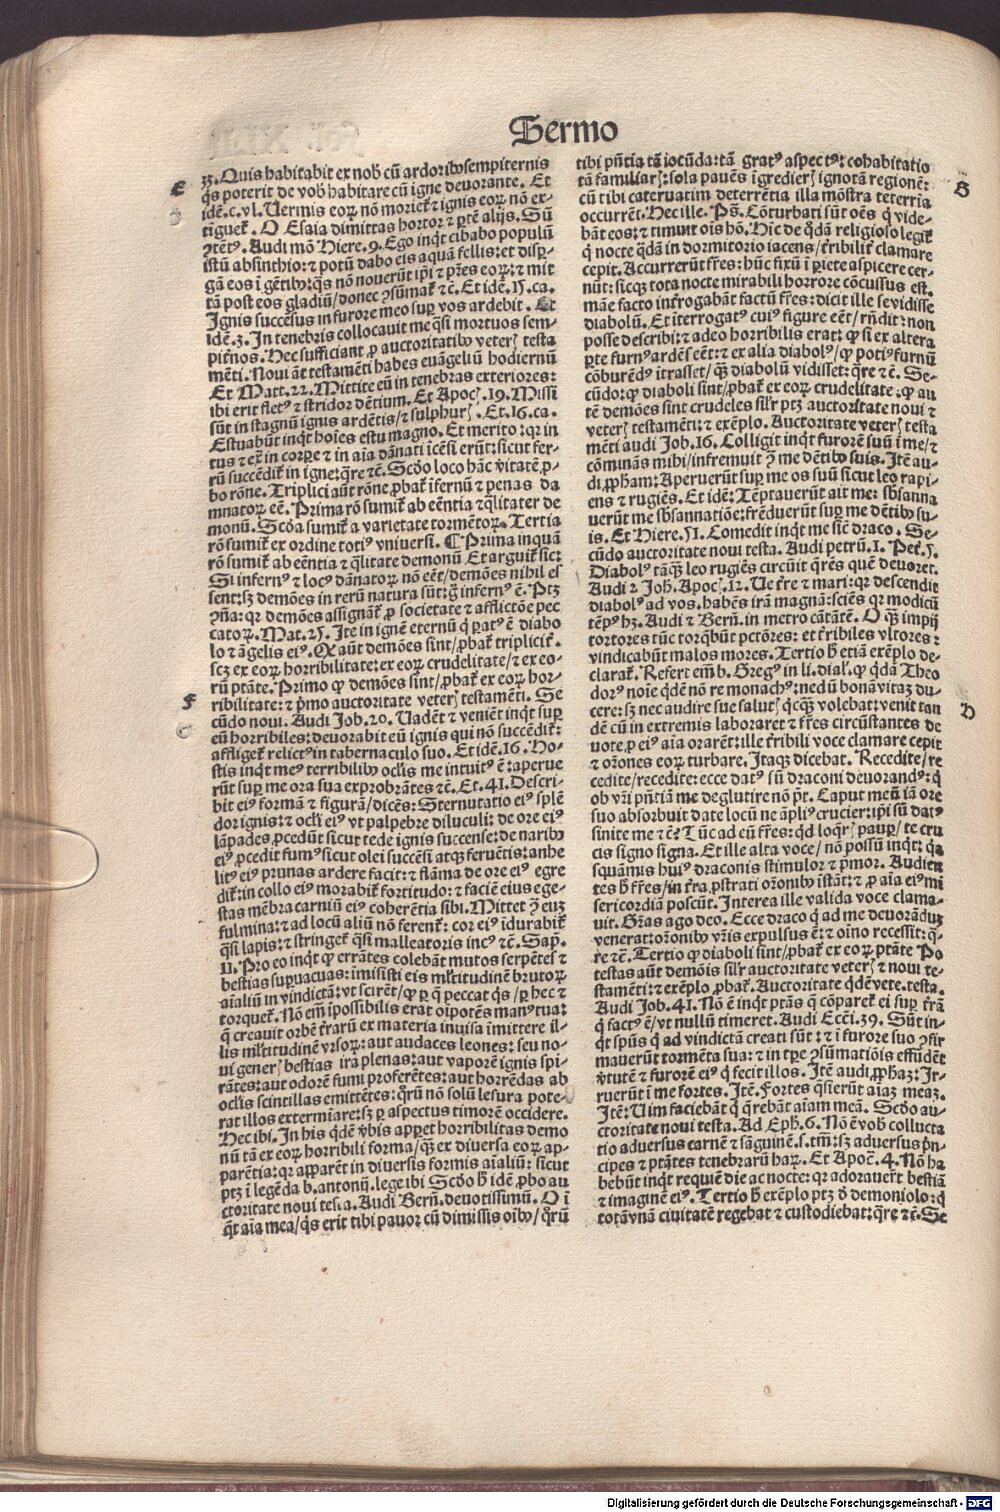 Sermo
33. Quis habitabit ex nob̃ cũ ardoribꝰ sempiternis
E
q̃s poterit de vob̃ habitare cũ igne devorante. Et
idẽ.c.vl. Uermis eoꝝ nõ morieť ⁊ ignis eoꝝ nõ ex-
tigueť. O Esaia dimittas hortor ⁊ ꝑtẽ alijs. Sũ
ꝯtẽtꝰ. Audi mõ Hiere.9. Ego inq̃t cibabo populũ
istũ absinthio: ⁊ potũ dabo eis aquã fellis: et disꝑ-
gã eos ĩ gẽtibꝰ: q̃s nõ noverũt ip̃i ⁊ pr̃es eoꝝ: ⁊ mit
tã post eos gladiũ/ donec ꝯsũmať ⁊c̃. Et idẽ.15.ca.
Ignis succẽsus in furore meo suꝑ vos ardebit. Et
idẽ.3. In tenebris collocauit me q̃si mortuos sem-
pitnos. Hec sufficiant ꝓ auctoritatibꝰ veterꝭ testa
mẽti. Noui aũt testamẽti habes euãgeliũ hodiernũ
Et Matt.22. Mittite eũ in tenebras exteriores:
ibi erit fletꝰ ⁊ stridor dẽtium. Et Apocꝭ.19. Missi
sũt in stagnũ ignis ardẽtis/ ⁊ sulphurꝭ. Et.16.ca.
Estuabũt inq̃t hoĩes estu magno. Et merito: qꝛ in
tus ⁊ exť in corꝑe ⁊ in aĩa dãnati icẽsi erũt: sicut fer-
rũ succẽdiť in igne: q̃re ⁊c̃. Scd̃o loco hãc v̑itatẽ ꝓ-
bo rõne. Triplici aũt rõne ꝓbať ĩfernũ ⁊ penas da
mnatoꝝ eẽ. Prima rõ sumiť ab eẽntia ⁊ q̃litater de
monũ. Scd̃a sumiť a varietate tormẽtoꝝ. Tertia
rõ sumiť ex ordine totiꝰ vniuersi. ¶ Prima inquã
rõ sumiť ab eẽntia ⁊ q̃litate demonũ. Et arguiť sic:
Si infernꝰ ⁊ locꝰ dãnatoꝝ nõ eẽt/ demões nihil es
sent: sꝫ demões in rerũ natura sũt: g̊ infernꝰ ẽ. Ptꝫ
ꝯña: qꝛ demões assignãť ꝓ societate ⁊ afflictõe pec
catoꝝ. Mat.25. Ite in ignẽ eternũ q̇ ꝑatꝰ ẽ diabo
lo ⁊ ãgelis eiꝰ. Qꝛ aũt demões sint/ ꝓbať tripliciť.
scꝫ ex eoꝝ horribilitate: ex eoꝝ crudelitate/ ⁊ ex eo-
rũ ptãte. Primo ꝙ demões sint/ ꝓbať ex eoꝝ hor-
F
ribilitate: ⁊ p̃mo auctoritate veterꝭ testamẽti. Se
cũdo noui. Audi Job.20. Uadẽt ⁊ veniẽt inq̃t suꝑ
eũ horribiles: deuorabit eũ ignis qui nõ succẽdiť:
affligeť relictꝰ in tabernaculo suo. Et idẽ.16. Ho-
stis inq̃t meꝰ terribilibꝰ ocĺis me intuitꝰ ẽ: aperue
rũt suꝑ me ora sua exprobrãtes ⁊c̃. Et.41. Descri-
bit eiꝰ formã ⁊ figurã/ dicẽs: Sternutatio eiꝰ splẽ
dor ignis: ⁊ ocĺi eiꝰ vt palpebre diluculi: de ore eiꝰ
lãpades ꝓcedũt sicut tede ignis succense: de naribꝰ
eiꝰ ꝓcedit fumꝰ sicut olei succẽsi atqꝫ feruẽtis: anhe
litꝰ eiꝰ prunas ardere facit: ⁊ flãma de ore eiꝰ egre
diť: in collo eiꝰ morabiť fortitudo: ⁊ faciẽ eius ege-
stas mẽbra carniũ eiꝰ coherẽtia sibi. Mittet ꝯ̃ euꝫ
fulmina: ⁊ ad locũ aliũ nõ ferenť: cor eiꝰ ĩdurabiť
q̃si lapis: ⁊ stringeť q̃si malleatoris incꝰ ⁊c̃. Sap̃.
11. Pro eo inq̃t ꝙ errãtes colebãt mutos serpẽtes ⁊
bestias suꝑuacuas: ĩmisisti eis mĺtitudinẽ brutoꝝ
aĩaliũ in vindictã: vt scirẽt/ ꝙ ꝑ q̃ peccat q̃s/ ꝑ hec ⁊
torqueť. Nõ em̃ ĩpossibilis erat oĩpotẽs manꝰ tua:
q̃ creauit orbẽ t̃rarũ ex materia inuisa ĩmittere il-
lis mĺtitudinẽ vrsoꝝ: aut audaces leones: seu no-
ui generꝭ bestias ira plenas: aut vaporẽ ignis spi-
rãtes: aut odorẽ fumi proferẽtes: aut horrẽdas ab
ocĺis scintillas emittẽtes: q̃rũ nõ solũ lesura pote-
rat illos extermĩare: sꝫ ꝑ aspectus timorẽ occidere.
Hec ibi. In his q̃dẽ v̑bis appɜet horribilitas demo
nũ tã ex eoꝝ horribili forma/ q̃ꝫ ex diuersa eoꝝ ap-
parẽtia: qꝛ apparẽt in diuersis formis aĩaliũ: sicut
ptꝫ ĩ legẽda b. antonij. lege ibi Scd̃o b̃ idẽ ꝓbo au
ctoritate noui test.a. Audi Berñ. deuotissimũ. O ĩ
q̃t aĩa mea/ q̃s erit tibi pauor cũ dimissis oĩbꝰ/ q̃rũ
tibi pñtia tã iocũda: tã gratꝰ aspectꝰ: cohabitatio
G
tã familiarꝭ: sola pauẽs ĩgredierꝭ ignotã regionẽ:
cũ tibi cateruatim deterrẽtia illa mõstra teterria
occurrẽt. Hec ille. Ps̃. Cõturbati sũt oẽs q̃ vide-
bãt eos: ⁊ timuit oĩs hõ. Hĩc de q̃dã religioso legiť
q̃ nocte q̃dã in dormitorio iacens/ ťribiliť clamare
cepit. Accurrerũt fr̃es: hũc fixũ ĩ ꝑiete aspicere cer-
nũt: sicqꝫ tota nocte mirabili horrore cõcussus est.
mãe facto inťrogabãt factũ fr̃es: dicit ille se vidisse
diabolũ. Et ĩterrogatꝰ cuiꝰ figure eẽt/ rñdit: non
posse describi: ⁊ adeo horribilis erat: ꝙ si ex altera
ꝑte furnꝰ ardẽs eẽt: ⁊ ex alia diabolꝰ/ ꝙ potiꝰ furnũ
cõburẽdꝰ ĩtrasset/ q̃ꝫ diabolũ vidisset: q̃re ⁊c̃. Se-
cũdo: ꝙ diaboli sint/ ꝓbať ex eoꝝ crudelitate. ꝙ au
tẽ demões sint crudeles siĺr ptꝫ auctoritate noui ⁊
veterꝭ testamẽti: ⁊ exẽplo. Auctoritate veterꝭ testa
mẽti audi Job.16. Colligit inq̃t furorẽ suũ ĩ me/ ⁊
cõminans mihi/ infremuit ꝯ̃ me dẽtibꝰ suis. Itẽ au-
di ꝓpham: Aperuerũt suꝑ me os suũ sicut leo rapi-
ens ⁊ rugiẽs. Et idẽ: Tẽptauerũt ait me: sb̃sanna
uerũt me sb̃sannatiõe: frẽduerũt suꝑ me dẽtibꝰ su-
is. Et Hiere.51. Comedit inq̃t me sic̃ draco. Se-
cũdo auctoritate noui testa. Audi petrũ.1. Peť.5.
Diabolꝰ tãq̃ꝫ leo rugiẽs circũit q̃rẽs quẽ deuoret.
Audi ⁊ Joh̃. Apocꝭ.12. Ue t̃re ⁊ mari: qꝛ descendit
diabolꝰ ad vos. habẽs irã magnã: sciẽs qꝛ modicũ
tẽpꝰ hꝫ. Audi ⁊ Berñ. in metro cãtãtẽ. O q̃ꝫ impij
tortores tũc torq̃bũt pctõres: et ťribiles vltores:
vindicabũt malos mores. Tertio b̃ etiã exẽplo de-
clarať. Refert em̃ b. Gregꝰ in li. diaĺ. ꝙ q̃dã Theo
dorꝰ noĩe q̃dẽ nõ re monachꝰ: nedũ bonã vitaꝫ du-
D
cere: sꝫ nec audire sue salutꝭ q̃cq̃ꝫ volebat: venit tan
dẽ cũ in extremis laboraret ⁊ fr̃es circũstantes de
uote. ꝓ eiꝰ aĩa orarẽt: ille ťribili voce clamare cepit
⁊ or̃ones eoꝝ turbare. Itaqꝫ dicebat. Recedite/ re
cedite/ recedite: ecce datꝰ sũ draconi deuorandꝰ: q̃
ob vr̃i pñtiã me deglutire nõ põt. Caput meũ iã ore
suo absorbuit date locũ ne ãpliꝰ crucier: ip̃i sũ datꝰ
sinite me ⁊c̃? Tũc ad eũ fr̃es: q̃d loq̃rꝭ pauꝑ/ te cru
cis signo signa. Et ille alta voce/ nõ possũ inq̃t: q̃a
squãmis huiꝰ draconis stimulor ⁊ p̃mor. Audien
tes b̃ fr̃es/ in ťra ꝓstrati or̃onibꝰ ĩstãt: ⁊ ꝓ aĩa eiꝰ mi
sericordiã poscũt. Interea ille valida voce clama-
uit. Gr̃as ago deo. Ecce draco q̃ ad me deuorãduꝫ
venerat: or̃onibꝰ vr̃is expulsus ẽ: ⁊ oĩno recessit: q̃-
re ⁊c̃. Tertio ꝙ diaboli sint/ ꝓbať ex eoꝝ ptãte Po
testas aũt demõis siĺr auctoritate veterꝭ ⁊ noui te-
stamẽti: ⁊ exẽplo ꝓbať. Auctoritate q̃dẽ vete. testa.
Audi Job.41. Nõ ẽ inq̃t ptãs q̃ cõpareť ei suꝑ t̃rã
q̃ factꝰ ẽ/ vt nullũ timeret. Audi Ecĉi.39. Sũt in-
q̃t spũs q̃ ad vindictã creati sũt: ⁊ ĩ furore suo ꝯfir
mauerũt tormẽta sua: ⁊ in tꝑe ꝯsũmatiõis effũdẽt
v̑tutẽ ⁊ furorẽ eiꝰ q̃ fecit illos. Itẽ audi ꝓphaꝫ: Ir-
ruerũt ĩ me fortes. Itẽ. Fortes q̃sierũt aĩaꝫ meaꝫ.
Itẽ: Uim faciebãt q̃ q̃rebãt aĩam meã. Scd̃o au-
ctoritate noui testa. Ad Eph.6. Nõ ẽ vob̃ collucta
tio aduersus carnẽ ⁊ sãguinẽ.s.tm̃: sꝫ aduersus p̃n-
cipes ⁊ ptãtes tenebrarũ haꝝ. Et Apoc̃.4. Nõ ha
bebũt inq̃t requiẽ die ac nocte: qꝛ adorauerť bestiã
⁊ imaginẽ eiꝰ. Tertio b̃ exẽplo ptꝫ ð demoniolo: q̃
totã vnã ciuitatẽ regebat ⁊ custodiebat: q̃re ⁊c̃. Se
Digitalisierung gefördert durch die Deutsche Forschungsgemeinschaft - DFG